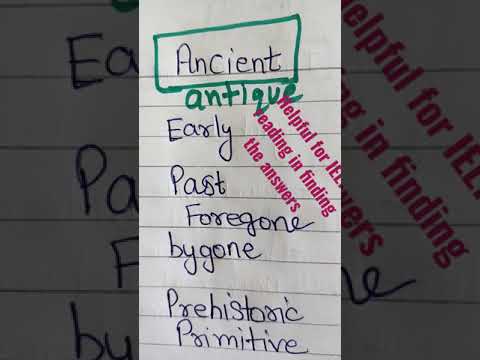 Ancient
antique
Early
Past
Foregone
bygone
Prehistoric
Primitive
Helpful for IEL
reading in finding
the answers